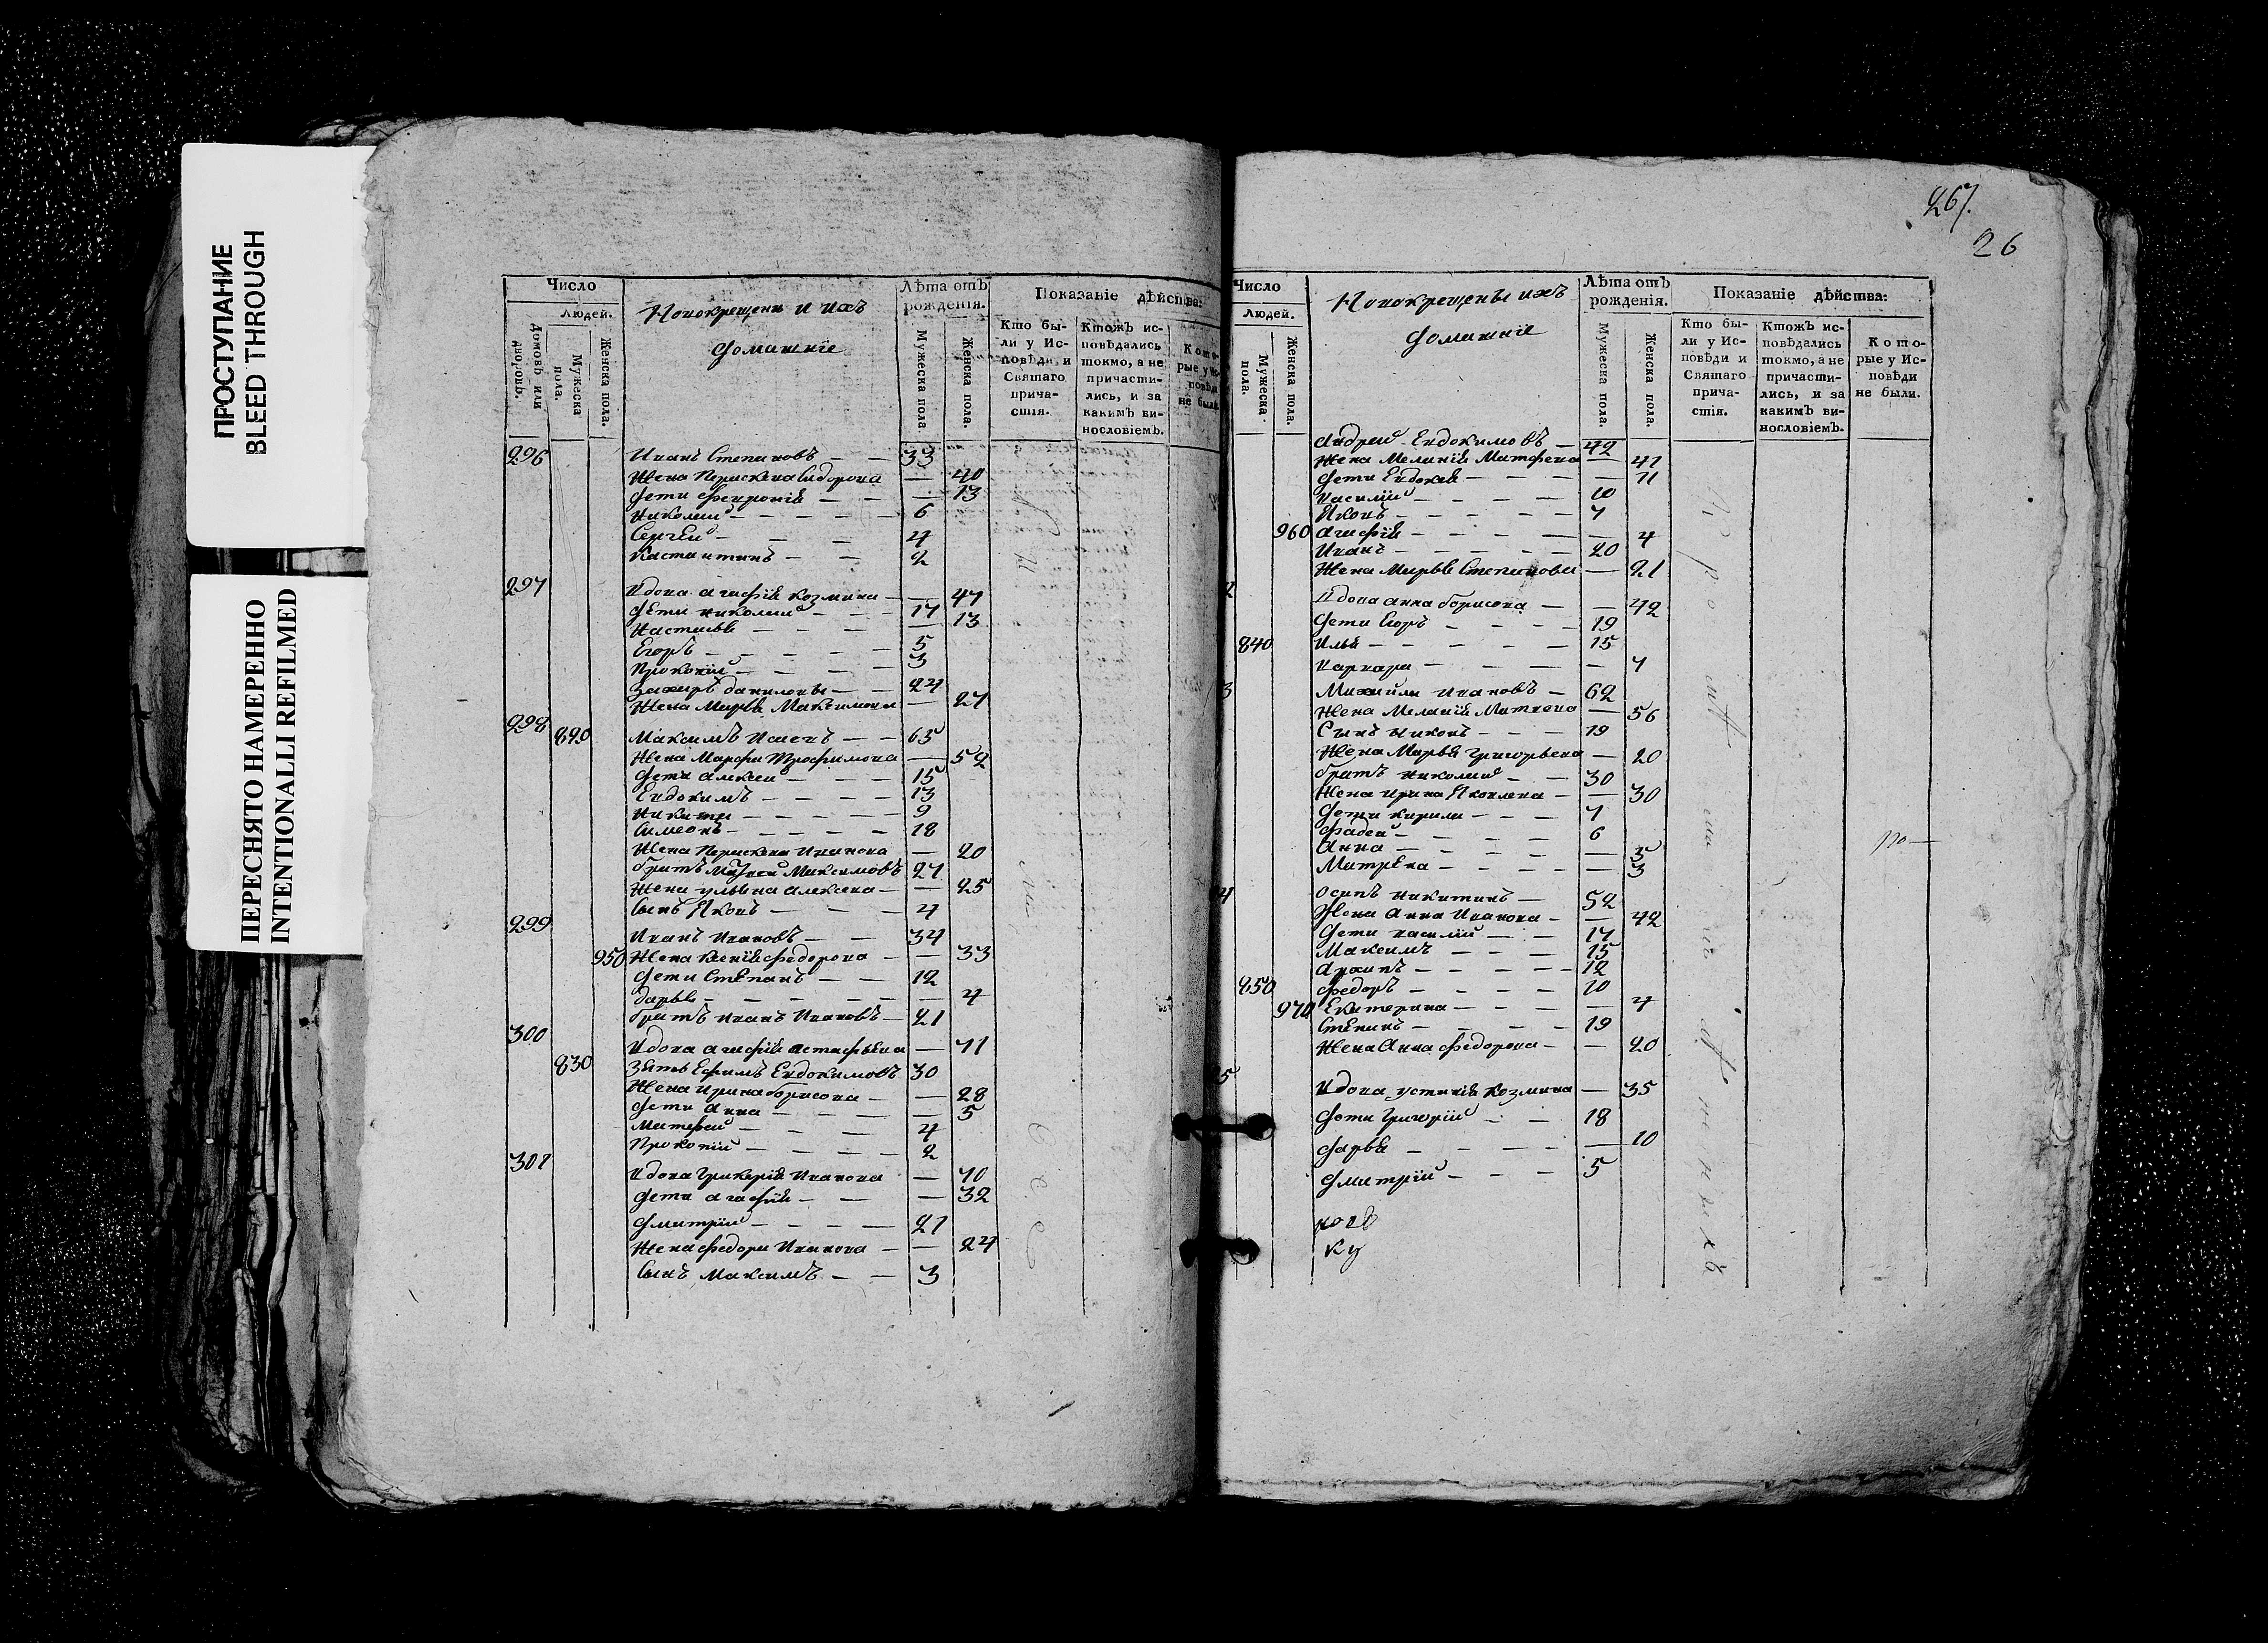 ПРОСТУПАНИЕ
BLEED THROUGH
ПЕРЕСНЯТО НАМЕРЕННО
INTENTIONALLI REFILMED
Число
Людей.
Домовъ или дворовъ.
Мужеска пола.
Женска пола.
Новокрещены и ихъ
домашнїе
Лѣта отъ рожденія.
Мужеска пола.
Женска пола.
Показаніе дѣйства:
Кто были у Исповѣди и Святаго причастія.
Ктожъ исповѣдались токмо, а не причастились, и за какимъ винословіемъ.
Которые у Исповѣди не были.
296 Иванъ Степановъ — — 33
Жена Параскева Сидорова — 40
Дети Феврониѧ — — — 13
Николай — — — — — 6
Сергей — — — 4
Костантинъ — — 2
297 Вдова Агафїѧ Козмина — — 47
Дети Николай — — 17
Настасья — — — — 13
Егоръ — — — — — 5
Прокопїй — — — 3
Захаръ Даниловъ — — 24
Жена Марья Максимова — 27
298 820 Максимъ — — 65
Жена Марфа Трофимова — 52
Дети Алексей — — 15
Евдокимъ — — — — 13
Никита — — — — — 9
Симеонъ — — — — — 18
Жена Параскева Иванова — 20
братъ Матвей Максимовъ 27
Жена Ульяна Алексева — — 25
Сынъ Яковъ — — — 4
299 Иванъ Ивановъ — — 34
950 Жена Ксенїѧ Федорова — — 33
Дети Степанъ — — 12
Дарья — — — — — — 4
братъ Иванъ Ивановъ — 21
300 Вдова Агафїѧ Астафьева — 71
830 Зять Ефимъ Евдокимовъ 30
Жена Ирина Борисова — — 28
Дети Анна — — — — 5
Матфей — — — — 4
Прокопїй — — — — 2
301 Вдова Гликерїѧ Иванова — 70
Дети Агафїѧ — — — 32
Дмитрїй — — — — 21
Жена Федора Иванова — — 24
Сынъ Максимъ — — 3
267.
26
Число
Людей.
Мужеска пола.
Женска пола.
Новокрещены ихъ
домашнїе
Лѣта отъ рожденія.
Мужеска пола.
Женска пола.
Показаніе дѣйства:
Кто были у Исповѣди и Святаго причастія.
Ктожъ исповѣдались токмо, а не причастились, и за какимъ винословіемъ.
Которые у Исповѣди не были.
Андрей Евдокимовъ — 42
Жена Меланїѧ Матфева — 41
Дети Евдокея — — — — 11
Василїй — — — — 10
Яковъ — — — — — 7
960 Агафїѧ — — — — — 4
Иванъ — — — — — — 20
Жена Марья Степанова — 21
2 Вдова Анна Борисова — — 42
Дети Егоръ — — — — 19
840 Илья — — — — — 15
Варвара — — — — 7
3 Михайла Ивановъ — 62
Жена Меланїѧ Матвева — 56
Сынъ Никонъ — — — 19
Жена Марья Григорьева — 20
братъ Николай — — 30
Жена Ирина Яковлева — — 30
Дети Кирила — — — 7
Фадей — — — — — 6
Анна — — — — — 5
Матрена — — — — — 3
4 Осипъ Никитинъ — 52
Жена Анна Иванова — — 42
Дети Василїй — — 17
Максимъ — — — 15
Архипъ — — — — — 12
850 Федоръ — — — — 10
970 Екатерина — — — — 4
Степанъ — — — — 19
Жена Анна Федорова — — 20
5 Вдова Устинїѧ Козмина — 35
Дети Григорїй — — 18
Дарья — — — — — 10
Дмитрїй — — — 5